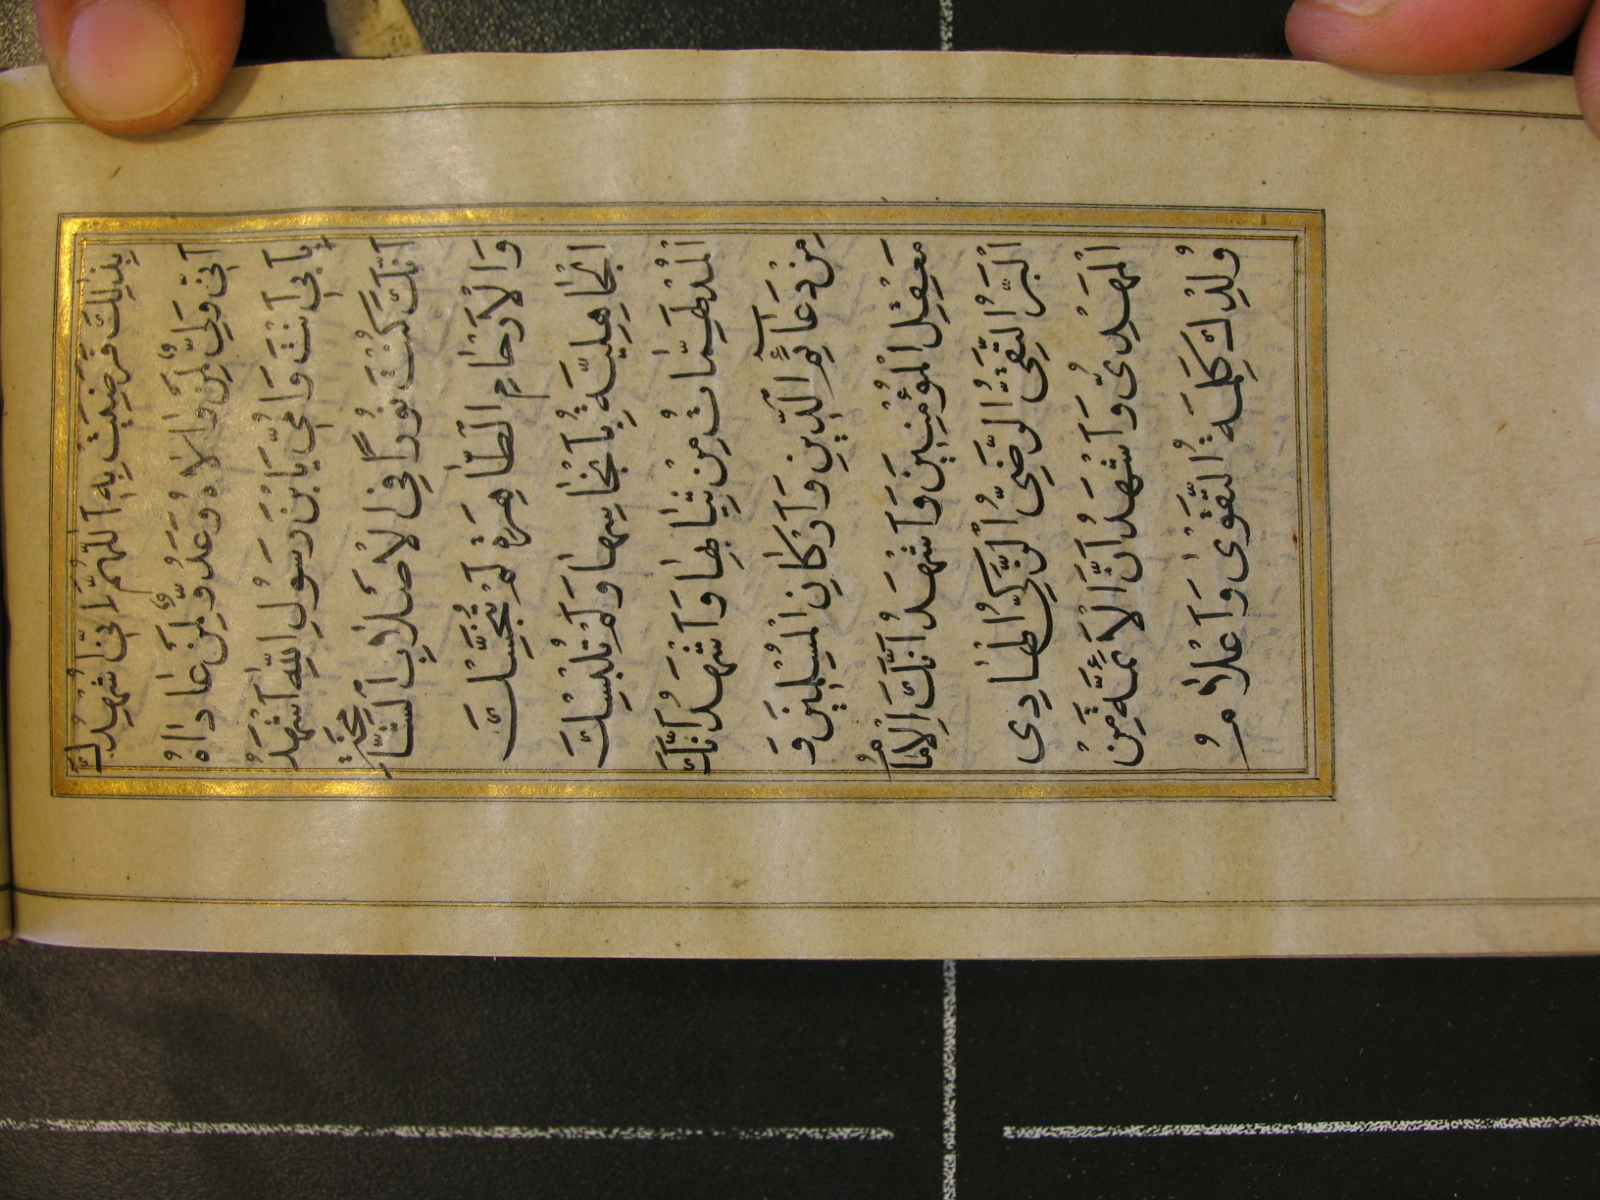 بِذٰلِكَ فَرَضِيَتْ بِهِ اَللّٰهُمَّ اِنّىٖ اُشْهِدُكَ
اَنّىٖ وَلِىٌّ لِمَنْ وٰالاٰهُ وَعَدُوٌّ لِمَنْ عٰادٰاهُ
بِاَبىٖ اَنْتَ وَاُمّىٖ يَابْنَ رَسُولِ اللّٰهِ اَشْهَدُ
اَنَّكَ كُنْتَ نُورًا فِى الْاَصْلاٰبِ الشّٰامِخَةِ
وَالْاَرْحٰامِ الطّٰاهِرَةِ لَمْ تُنَجِّسْكَ
الْجٰاهِلِيَّةُ بِاَنْجٰاسِهٰا وَلَمْ تُلْبِسْكَ
الْمُدْلَهِمّٰاتُ مِنْ ثِيٰابِهٰا وَاَشْهَدُ اَنَّكَ
مِنْ دَعٰائِمِ الدّٖينِ وَاَرْكٰانِ الْمُسْلِمٖينَ وَ
مَعْقِلِ الْمُؤْمِنٖينَ وَاَشْهَدُ اَنَّكَ الْاِمٰامُ
الْبَرُّ التَّقِىُّ الرَّضِىُّ الزَّكِىُّ الْهٰادِى
الْمَهْدِىُّ وَاَشْهَدُ اَنَّ الْاَئِمَّةَ مِنْ
وُلْدِكَ كَلِمَةُ التَّقْوٰى وَاَعْلاٰمُ